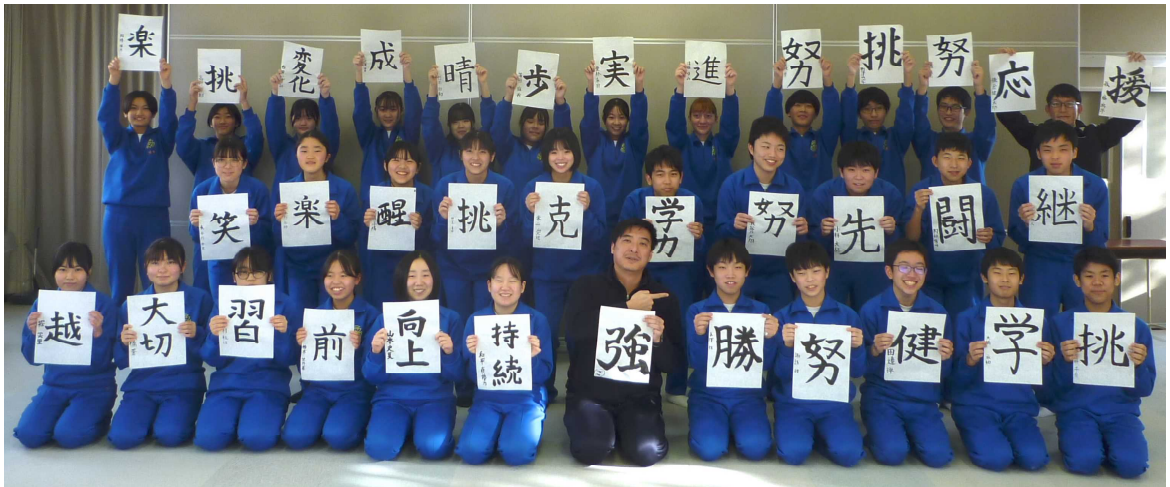 楽 挑 変化 成 晴 歩 実 進 努 挑 努 応 援
笑 楽 醒 挑 克 学力 努 先 闘 継
越 大切 習 前 向上 持続 強 勝 努 健 学 挑